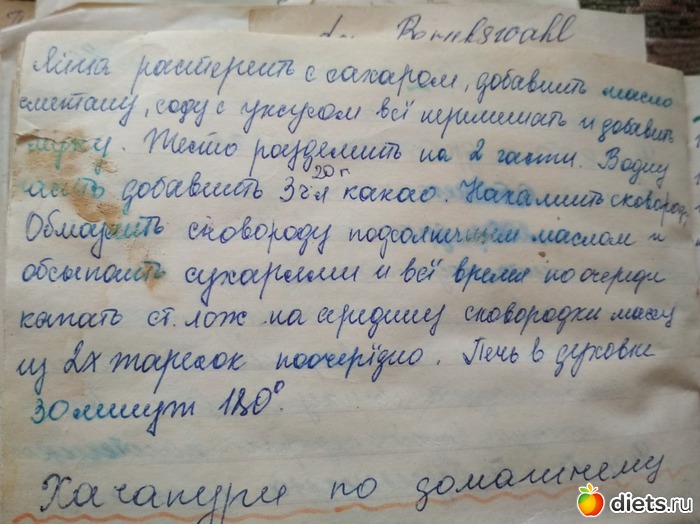 Bornhswahl
Яйца растереть с сахаром, добавить масло
сметану, соду с уксусом всё перимешать и добавить
муку. Тесто разделить на 2 части. Водну
часть добавить 3 ч л 20 г какао. Накалить сковороду,
Обмазать сковороду подсолничним маслом и
обсыпать сухарями и всё время по очереди
капать ст. лож на середину сковородки массу
из 2х тарелок поочерёдно. Печь в духовки
30 минут 180°.
Хачапури по домашнему
diets.ru